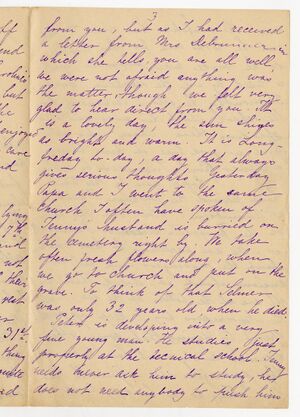 3
from you, but as I had received
a letter from Mrs
which she tells, you are all well
we were not afraid anything was
the matter, though we felt very
glad to hear direct from you. It
is a lovely day, the sun shines
so bright and warm. It is Long-
freday to-day, a day that always
gives serious thoughts. Yesterday
Papa and I went to the same
church I often have spoken of.
Jenny's husband is burried on
the cemetery right by. We take
often fresh flowers along, when
we go to church and put on the
grave. To think of that
was only 32 years old, when he died.
Peter is developing into a very
fine young man. He studies just
properly at the tecnical school.
needs never ask him to study, he
does not need anybody to push him